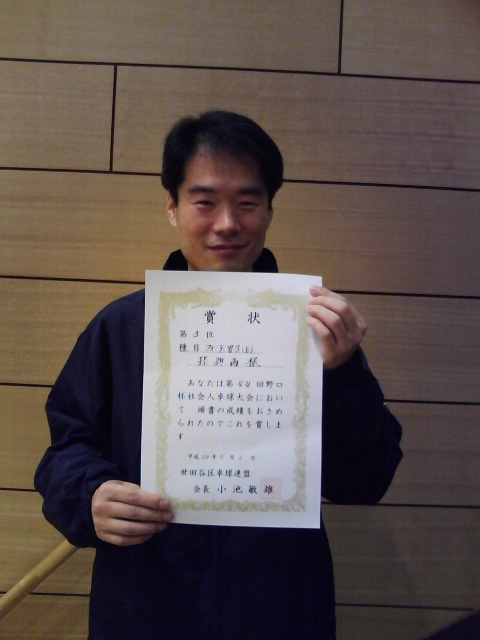 賞 状
第 3 位
種 目
様
あなたは第44回野口
杯社会人卓球大会におい
て 頭書の成績をおさめ
られたのでこれを賞しま
す
平成 年 月 日
世田谷区卓球連盟
会長 小池敏雄